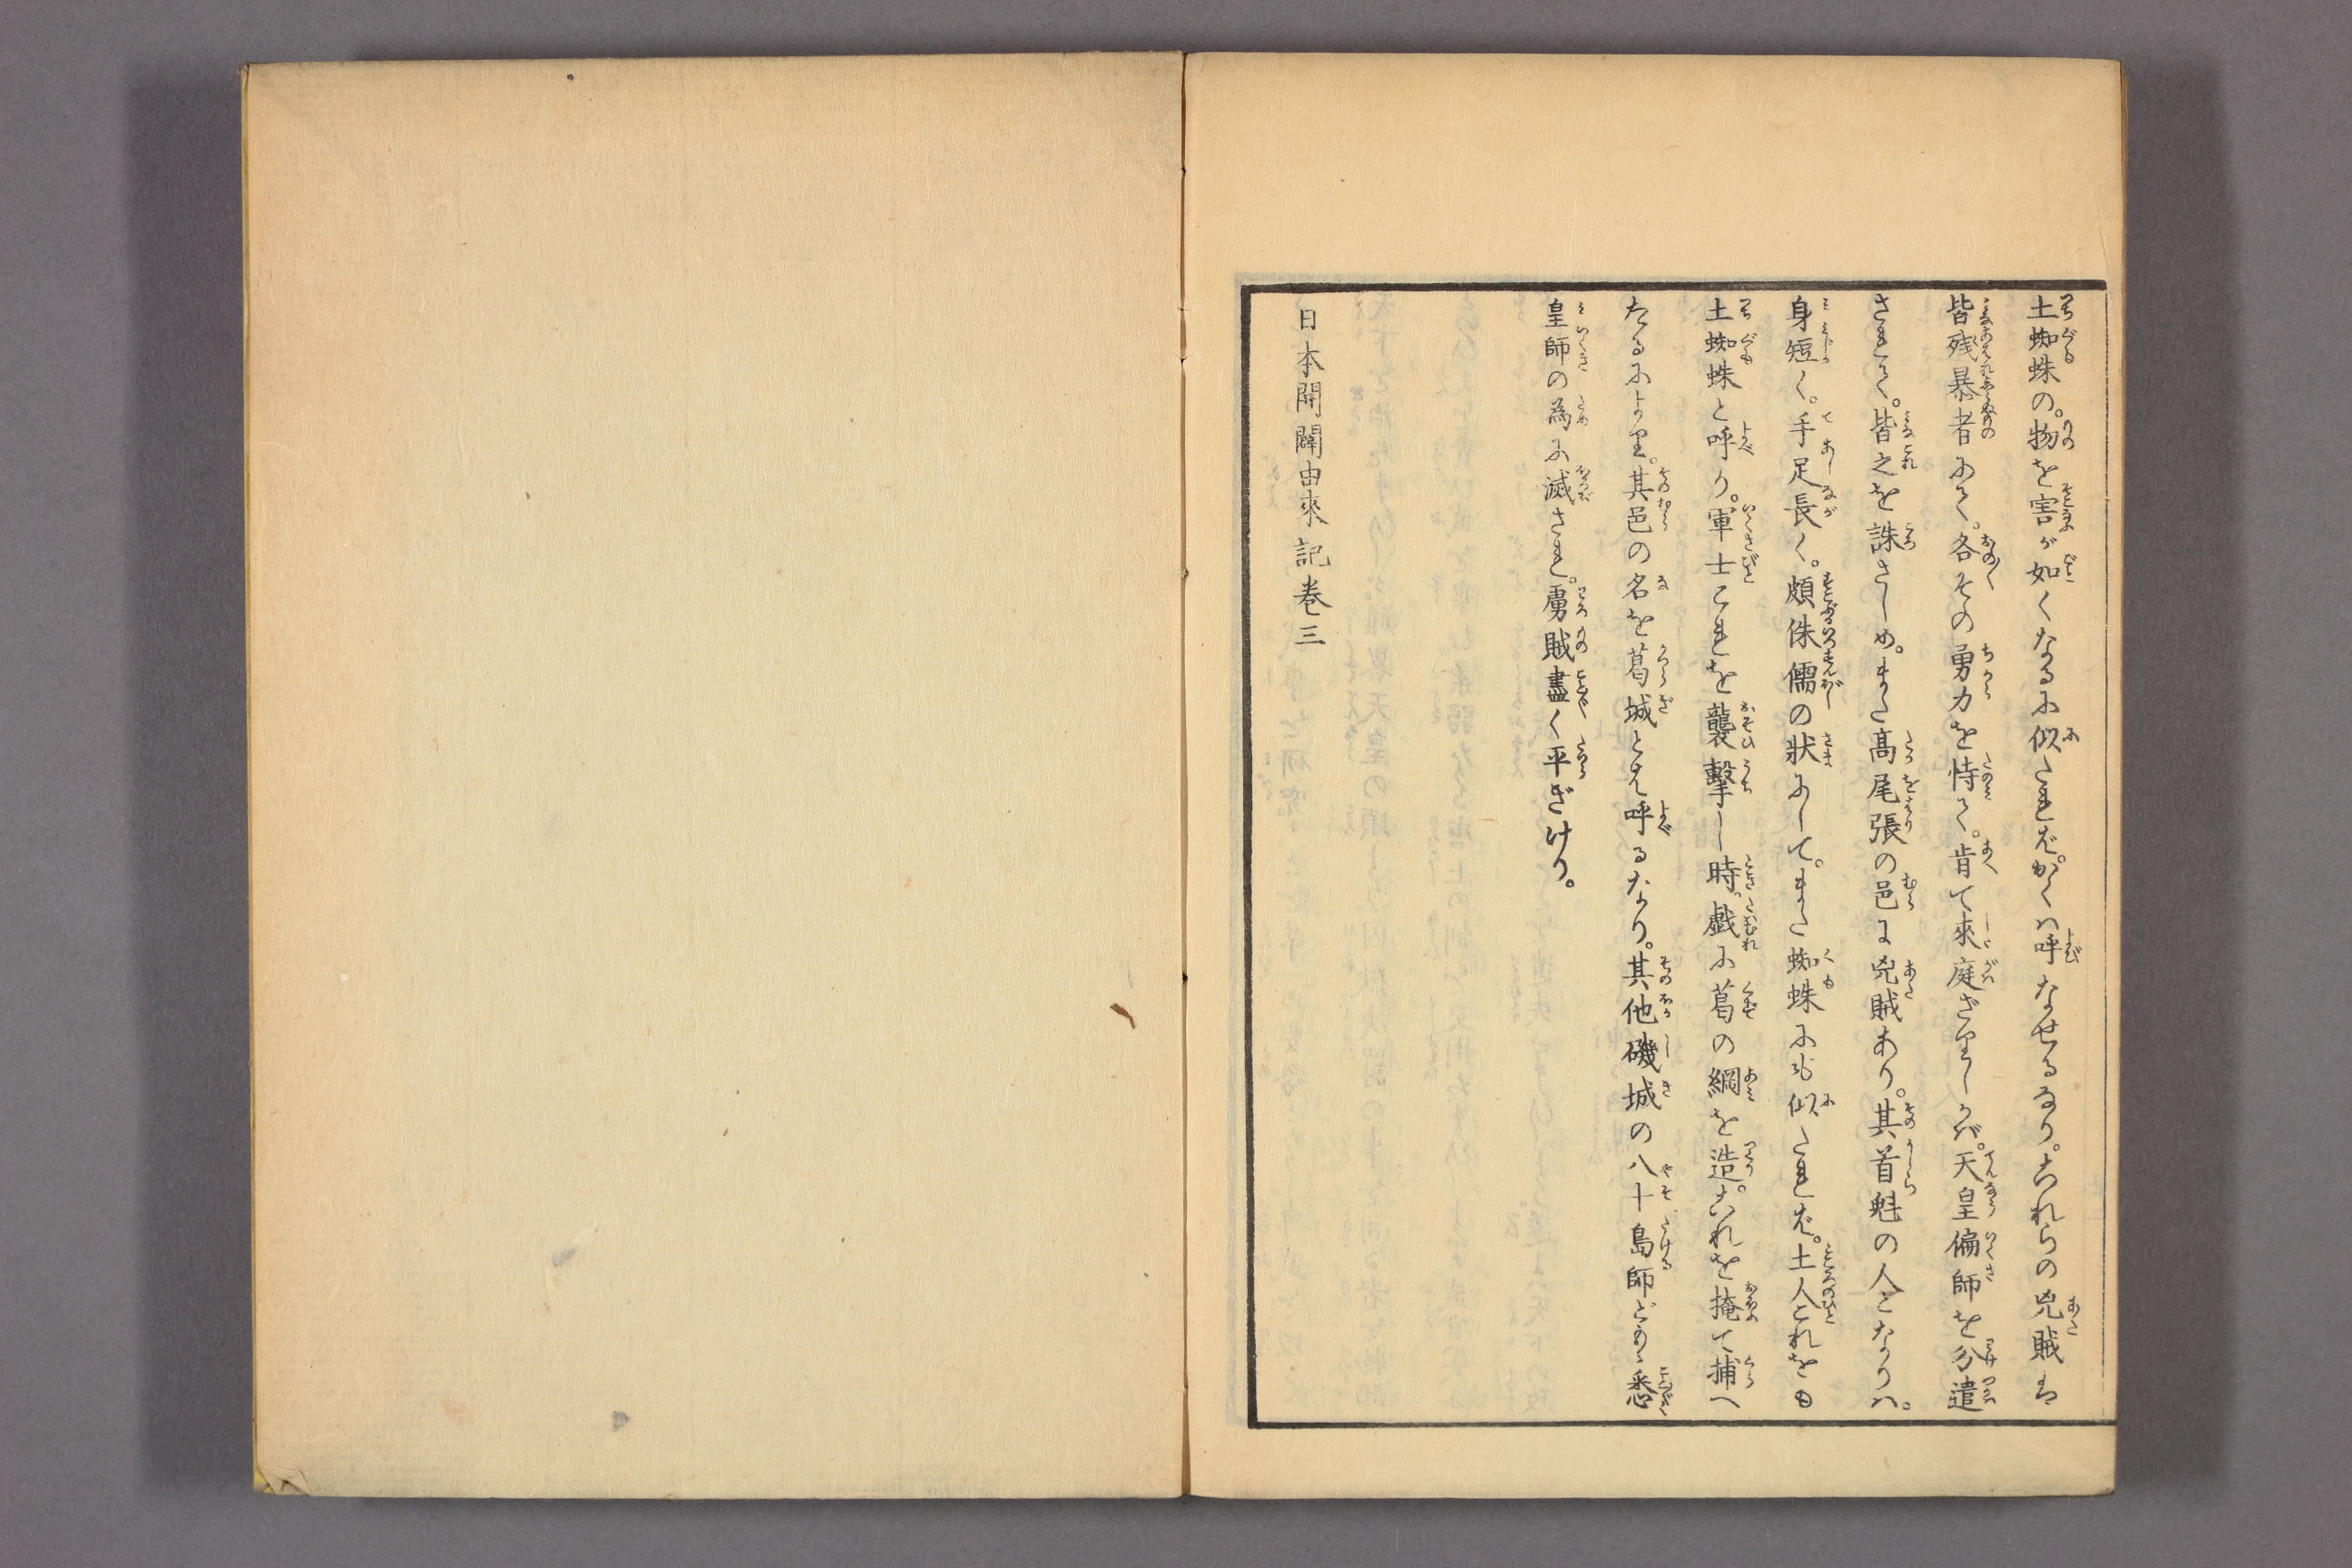 土蜘蛛の。物を害が如くなるに似たれば。かくは呼なせるなり。これらの兇賊は
皆残暴者にて。各その勇力を恃て。肯て來庭ざりしかば。天皇偏師を分遣
されて。皆之を誅さしめ。また高尾張の邑に兇賊あり。其首魁の人となりは。
身短く。手足長く。頗侏儒の状にして。また蜘蛛にも似たれば。土人これをも
土蜘蛛と呼り。軍士これを襲擊し時。戯に葛の網を造。これを掩て捕へ
たるによりて。其邑の名を葛城とは呼るなり。其他磯城の八十梟師ども悉
皇師の為に滅され。虜賊盡く平ぎけり。
日本開闢由來記巻三